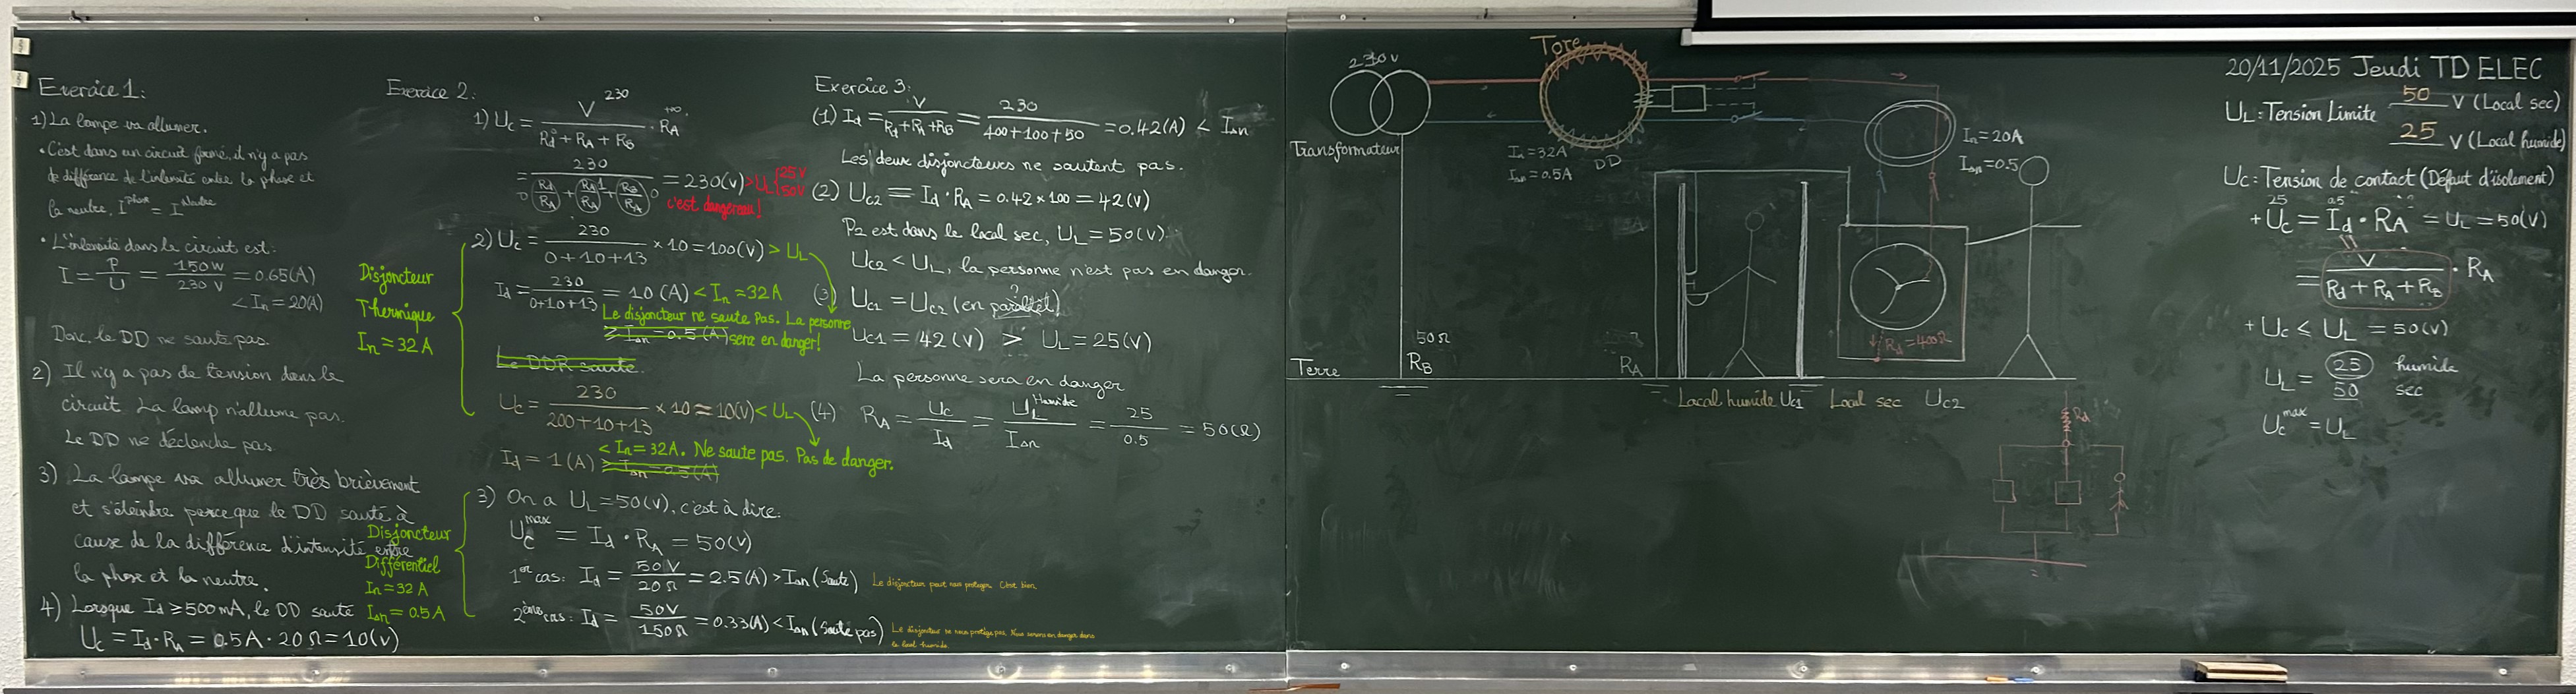 Exercice 1:
1) La lampe va allumer.
• C'est dans un circuit fermé, il n'y a pas
de différence de l'intensité entre la phase et
la neutre, I^phase = I^Neutre
• L'intensité dans le circuit est:
I = P/U = 150W/230V = 0.65(A)
< In = 20(A)
Donc, le DD ne saute pas.
2) Il n'y a pas de tension dans le
circuit. La lamp n'allume pas.
Le DD ne déclenche pas
3) La lampe va allumer très brièvement
et s'éteindre parce que le DD saute à
cause de la différence d'intensité entre
la phase et la neutre.
4) Lorsque Id ≥ 500mA, le DD saute
Uc = Id · RA = 0.5A · 20Ω = 10(V)
Disjoncteur
Thermique
In = 32A
Disjoncteur
Différentiel
In = 32 A
IΔn = 0.5 A
Exercice 2:
1) Uc = V 230 / (Rd + RA + RB) · RA
= 230 / (Rd/RA + RA/RA + RB/RA) = 230(V) > UL { 25V 50V
c'est dangereau!
2) Uc = 230/(0+10+13) × 10 = 100(V) > UL
Id = 230/(0+10+13) = 10 (A) < In = 32A
Le disjoncteur ne saute Pas. La personne
≥ IΔn = 0.5(A) sera en danger!
Le DDR saute.
Uc = 230/(200+10+13) × 10 = 10(V) < UL
< In = 32A. Ne saute pas. Pas de danger.
Id = 1(A) ≥ IΔn = 0.5(A)
3) On a UL = 50(V), c'est à dire:
Uc^max = Id · RA = 50(V)
1er cas: Id = 50V/20Ω = 2.5(A) > IΔn (Saute)
Le disjoncteur peut nous protéger. C'est bien.
2ème cas: Id = 50V/150Ω = 0.33(A) < IΔn (Saute pas)
Le disjoncteur ne nous protège pas. Nous serons en danger dans
le local humide.
Exercice 3:
(1) Id = V/(Rd+RA+RB) = 230/(400+100+50) = 0.42(A) < IΔn
Les deux disjoncteurs ne sautent pas.
(2) Uc2 = Id · RA = 0.42 × 100 = 42(V)
P2 est dans le local sec, UL = 50(V).
Uc2 < UL, la personne n'est pas en danger.
(3) Uc1 = Uc2 (en parallel)
Uc1 = 42(V) > UL = 25(V)
La personne sera en danger
(4) RA = Uc/Id = UL^Humide/IΔn = 25/0.5 = 50(Ω)
230V
Tore
Transformateur
In = 32A
IΔn = 0.5A
DD
In = 20A
IΔn = 0.5
50Ω
RB
RA
Rd = 400Ω
Terre
Local humide Uc1
Local sec Uc2
Rd
20/11/2025 Jeudi TD ELEC
UL: Tension Limite 50 V (Local sec)
25 V (Local humide)
Uc: Tension de contact (Défaut d'isolement)
25 0.5 ?
+ Uc = Id · RA = UL = 50(V)
= V/(Rd + RA + RB) · RA
+ Uc ≤ UL = 50(V)
UL = 25 humide
50 sec
Uc^max = UL